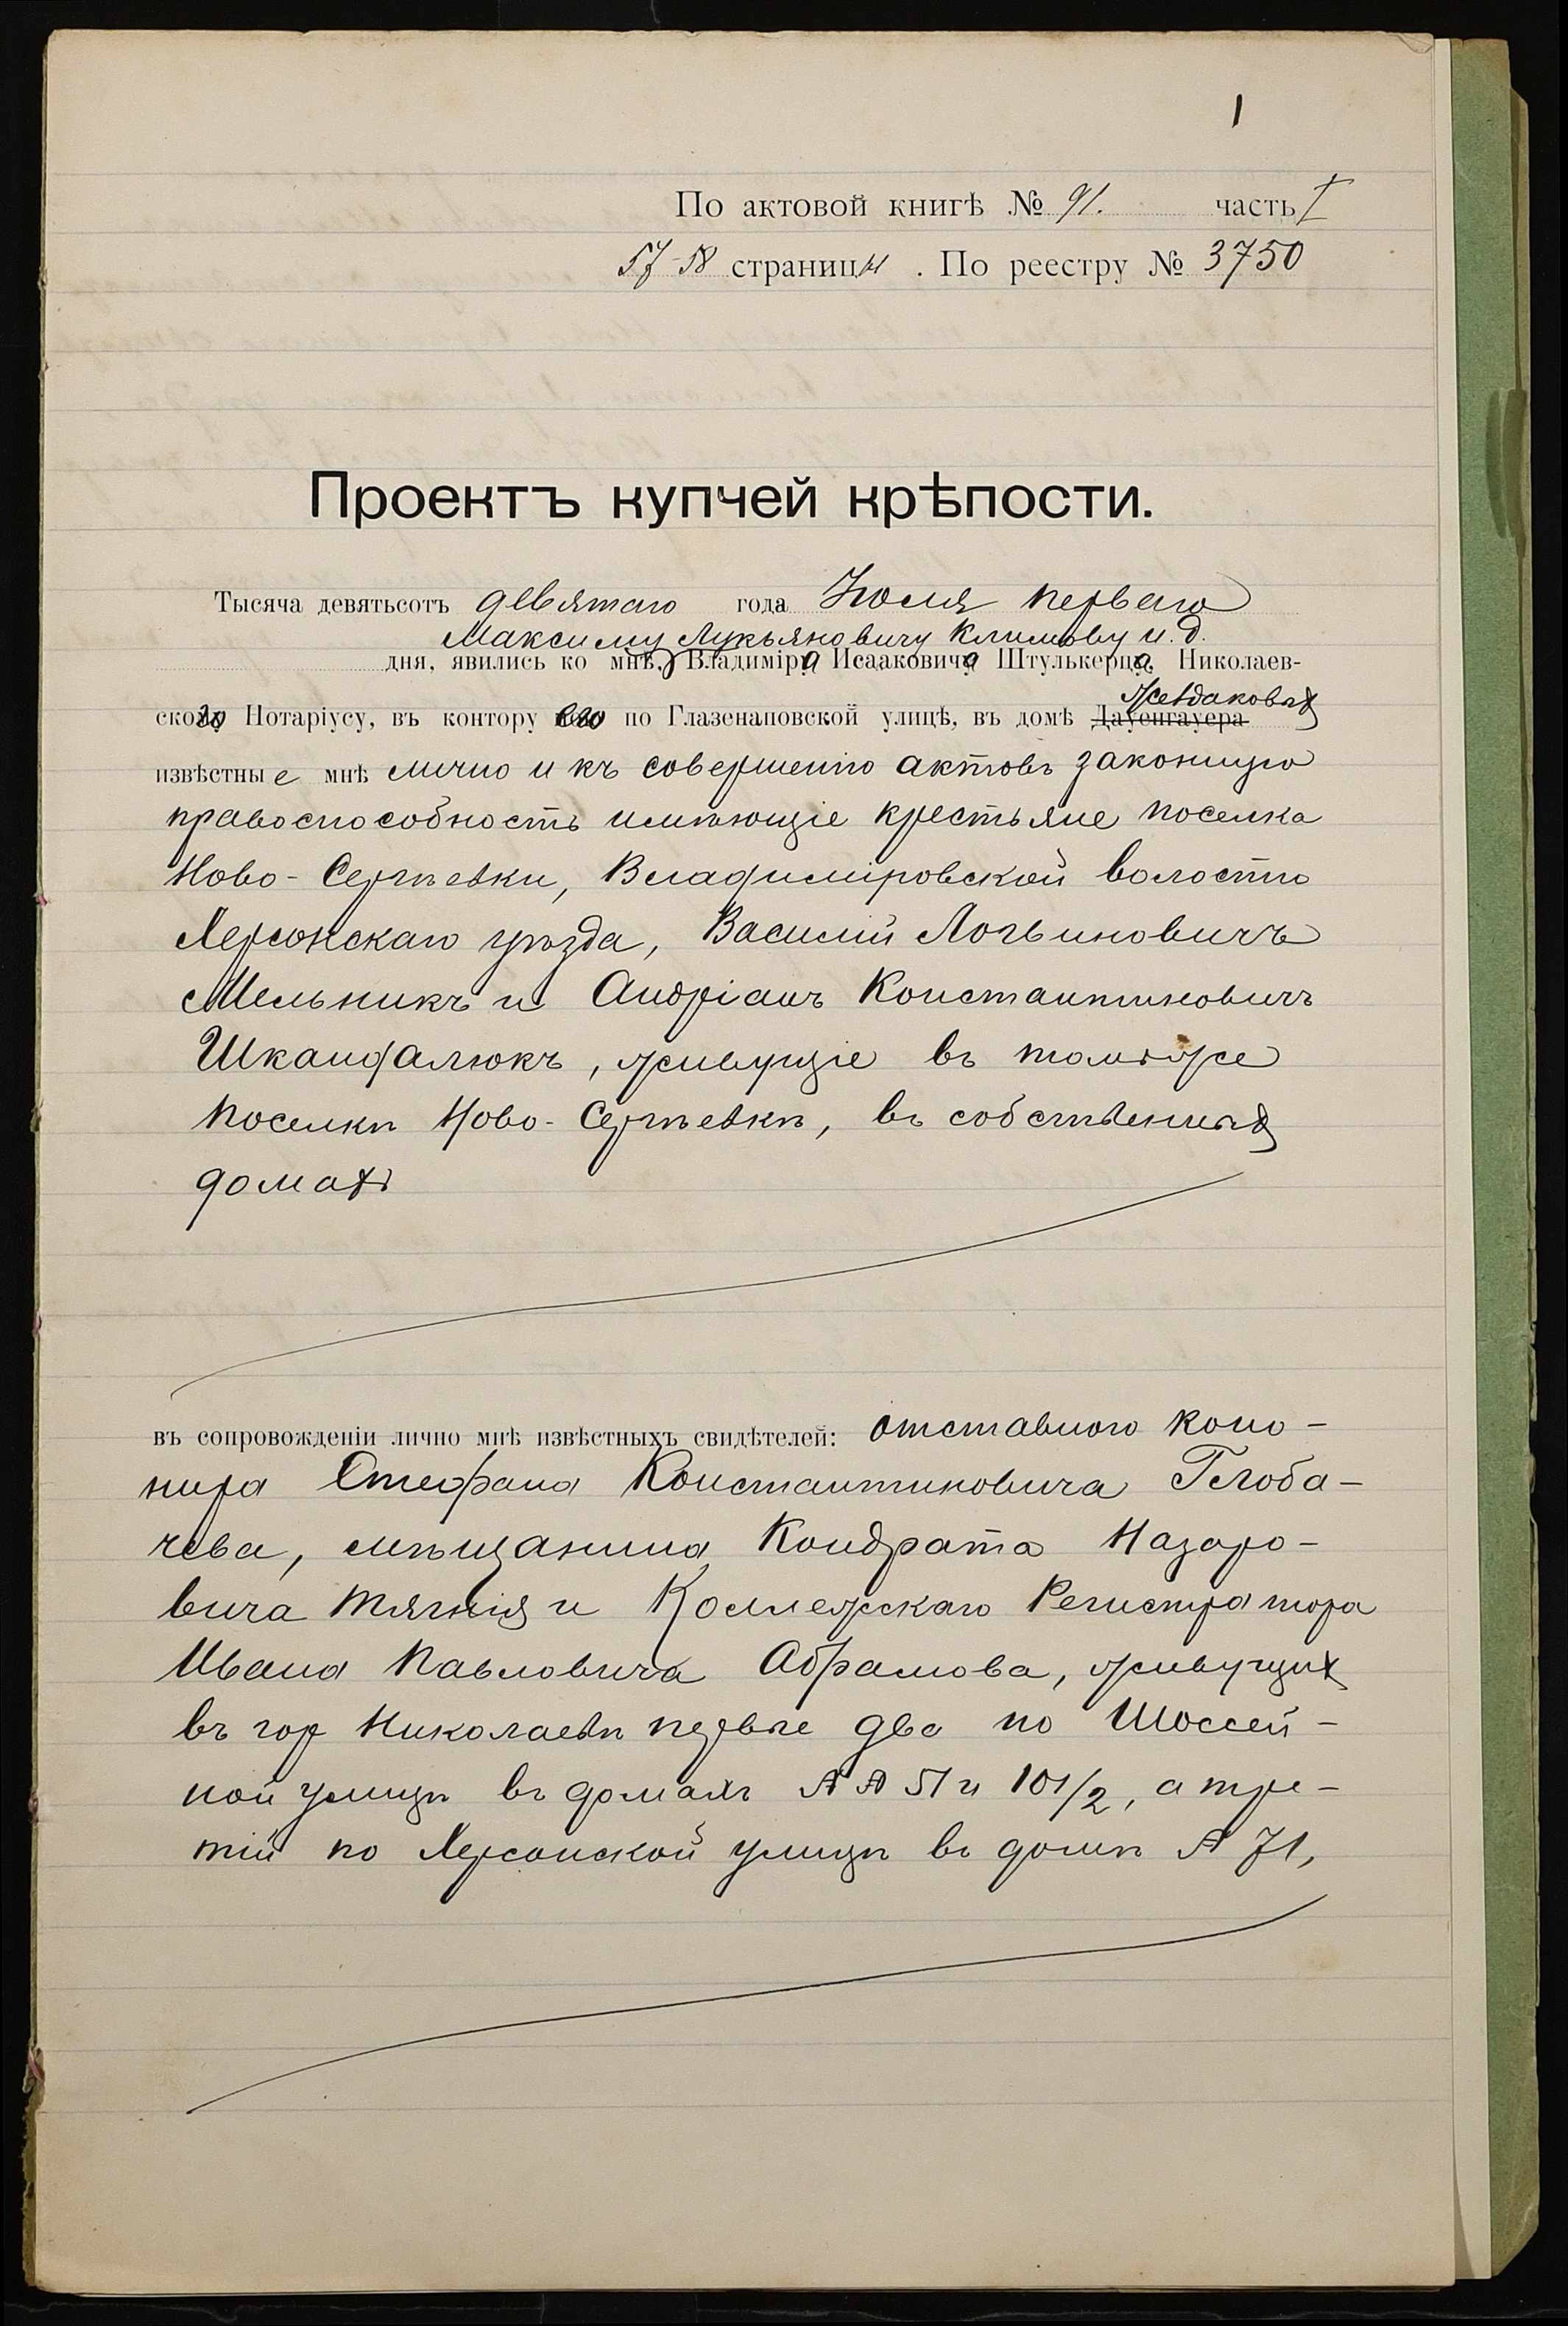 1
По актовой книгѣ № 91. часть I
57-58 страницы . По реестру № 3750
Проектъ купчей крѣпости.
Тысяча девятьсотъ девятаго года Іюля перваго
Максиму Лукьяновичу Климову и.д.
дня, явились ко мнѣ, Владиміра Исааковича Штулькерца, Николаев-
скаго Нотаріусу, въ контору его по Глазенаповской улицѣ, въ домѣ Дауенгауера
извѣстные мнѣ лично и къ совершенію актовъ законную
правоспособность имѣющіе крестьяне поселка
Ново-Сергѣевки, Владиміровской волости
Херсонскаго уѣзда, Василій Логвиновичъ
Мельникъ и Андріанъ Константиновичъ
Шкандалюкъ, живущіе въ томъ же
поселкѣ Ново-Сергѣевкѣ, въ собственныхъ
домахъ
въ сопровожденіи лично мнѣ извѣстныхъ свидѣтелей: отставного кано-
нира Стефана Константиновича Глоба-
чева, мѣщанина Кондрата Назаро-
вича Тягнія и Коллежскаго Регистратора
Ивана Павловича Абрамова, живущихъ
въ гор Николаевѣ первые два по Шоссей-
ной улицѣ въ домахъ №№ 51 и 101/2, а тре-
тій по Херсонской улицѣ въ домѣ № 71,